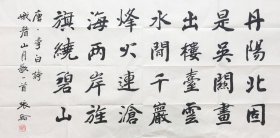 丹陽北固
是吳關畫
出樓臺雲
水間千巖
烽火連滄
海兩岸旌
旗繞碧山
唐李白詩
峨眉山月歌一首